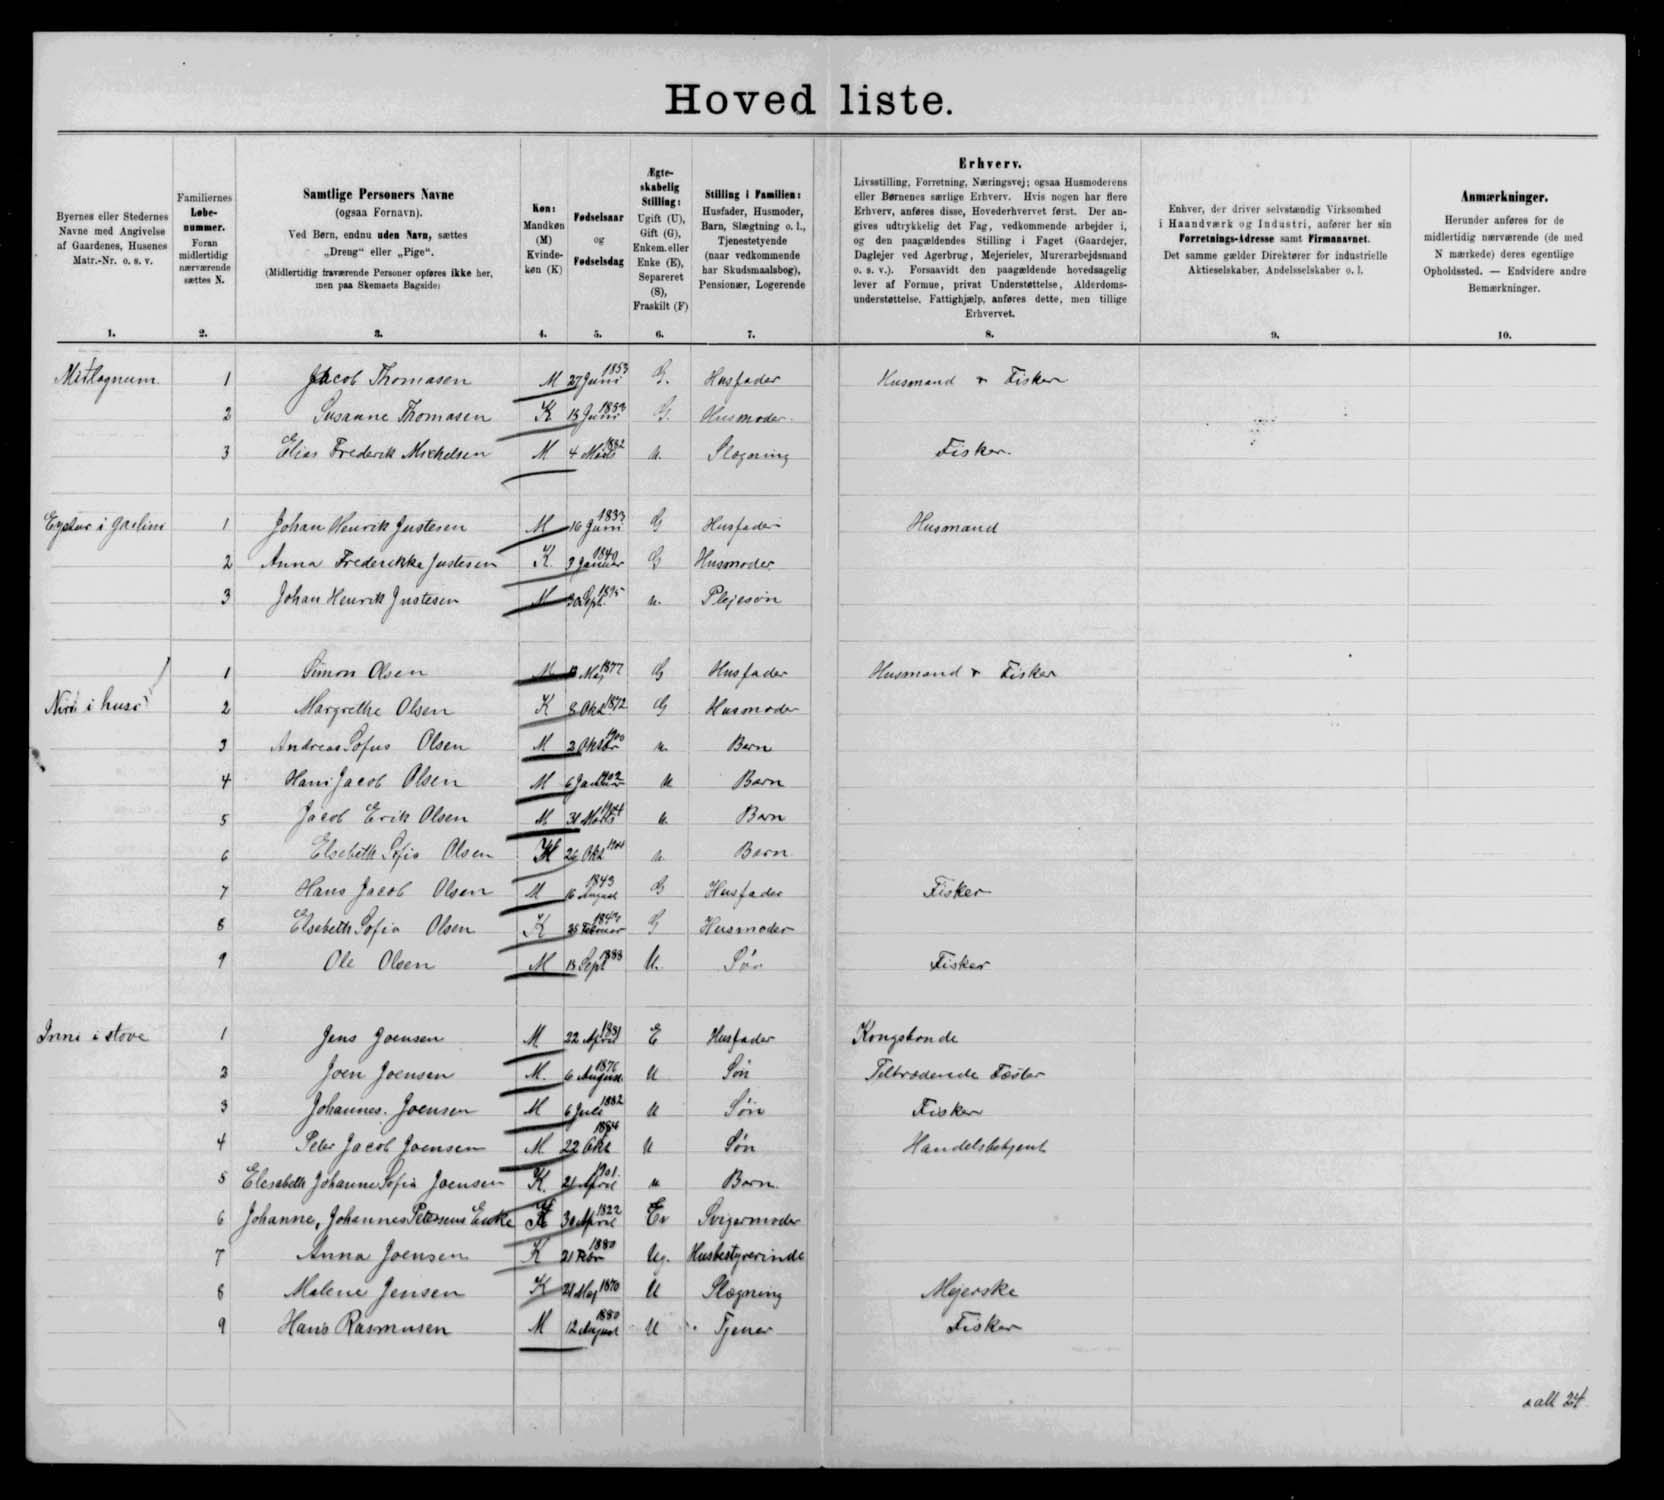 Hoved liste.
Byernes eller Stedernes
Navne med Angivelse
af Gaardenes, Husenes
Matr.-Nr. o. s. v.
1.
Familiernes
Løbe-
nummer.
Foran
midlertidig
nærværende
sættes N.
2.
Samtlige Personers Navne
(ogsaa Fornavn).
Ved Børn, endnu uden Navn, sættes
„Dreng“ eller „Pige“.
(Midlertidig fraværende Personer opføres ikke her,
men paa Skemaets Bagside)
3.
Køn:
Mandkøn
(M)
Kvinde-
køn (K)
4.
Fødselsaar
og
Fødselsdag
5.
Ægte-
skabelig
Stilling:
Ugift (U),
Gift (G),
Enkem. eller
Enke (E),
Separeret
(S),
Fraskilt (F)
6.
Stilling i Familien:
Husfader, Husmoder,
Barn, Slægtning o. l.,
Tjenestetyende
(naar vedkommende
har Skudsmaalsbog),
Pensionær, Logerende
7.
Erhverv.
Livsstilling, Forretning, Næringsvej; ogsaa Husmoderens
eller Børnenes særlige Erhverv. Hvis nogen har flere
Erhverv, anføres disse, Hovederhvervet først. Der an-
gives udtrykkelig det Fag, vedkommende arbejder i,
og den paagældendes Stilling i Faget (Gaardejer,
Daglejer ved Agerbrug, Mejerielev, Murerarbejdsmand
o. s. v.). Forsaavidt den paagældende hovedsagelig
lever af Formue, privat Understøttelse, Alderdoms-
understøttelse, Fattighjælp, anføres dette, men tillige
Erhvervet.
8.
Enhver, der driver selvstændig Virksomhed
i Haandværk og Industri, anfører her sin
Forretnings-Adresse samt Firmanavnet.
Det samme gælder Direktører for industrielle
Aktieselskaber, Andelsselskaber o. l.
9.
Anmærkninger.
Herunder anføres for de
midlertidig nærværende (de med
N mærkede) deres egentlige
Opholdssted. — Endvidere andre
Bemærkninger.
10.
1 Jacob Thomasen M 27 Juni 1853 G. Husfader Husmand & Fisker
2 Susanne Thomasen K 13 Juni G. Husmoder.
3 Elias Frederik Mikkelsen M 4 Marts 1882 u. Slægning Fisker.
1 Johan Henrik Justesen M 16 Juni 1833 G Husfader Husmand
2 Anna Frederikke Justesen K. 9 Januar 1840 G Husmoder
3 Johan Henrik Justesen M 30 Sept. 1895 u. Plejesøn
1 Simon Olsen M 13 Maj 1877 G Husfader Husmand & Fisker
i husi 2 Margrethe Olsen K 8 Okt 1872 G Husmoder
3 Andreas Sofus Olsen M 2 Oktbr 1900 u. Barn
4 Hans Jacob Olsen M 6 Januar 1902 u Barn
5 Jacob Erik Olsen M 31 Marts 1904 u. Barn
6 Elsebeth Sofia Olsen K 26 Okt u. Barn
7 Hans Jacob Olsen M 16 August 1843 G Husfader Fisker
8 Elsebeth Sofia Olsen K 25 Februar G Husmoder
9 Ole Olsen M 13 Sept 1883 U. Søn Fisker
Inni i stove 1 Jens Joensen M 22 April 1831 E Husfader Kongsbonde
2 Joen Joensen M. 6 August 1876 U Søn Tiltrædende Fæster
3 Johannes Joensen M 6 Juli 1882 U Søn Fisker
4 Peter Jacob Joensen M. 22 Okt 1884 U Søn Handelsbetjent
5 Elesabeth Johanne Sofia Joensen K. 21 April 1901 u Barn.
6 Johanne, Johannes Petersens Enke K 30 April 1822 Ev Svigermoder
7 Anna Joensen K 21 Febr 1880 Ug. Husbestyrerinde
8 Malene Jensen K 21 Maj 1870 U Slægning Mejerske
9 Hans Rasmusen M 12 August 1880 U Tjener Fisker
i alt 24.